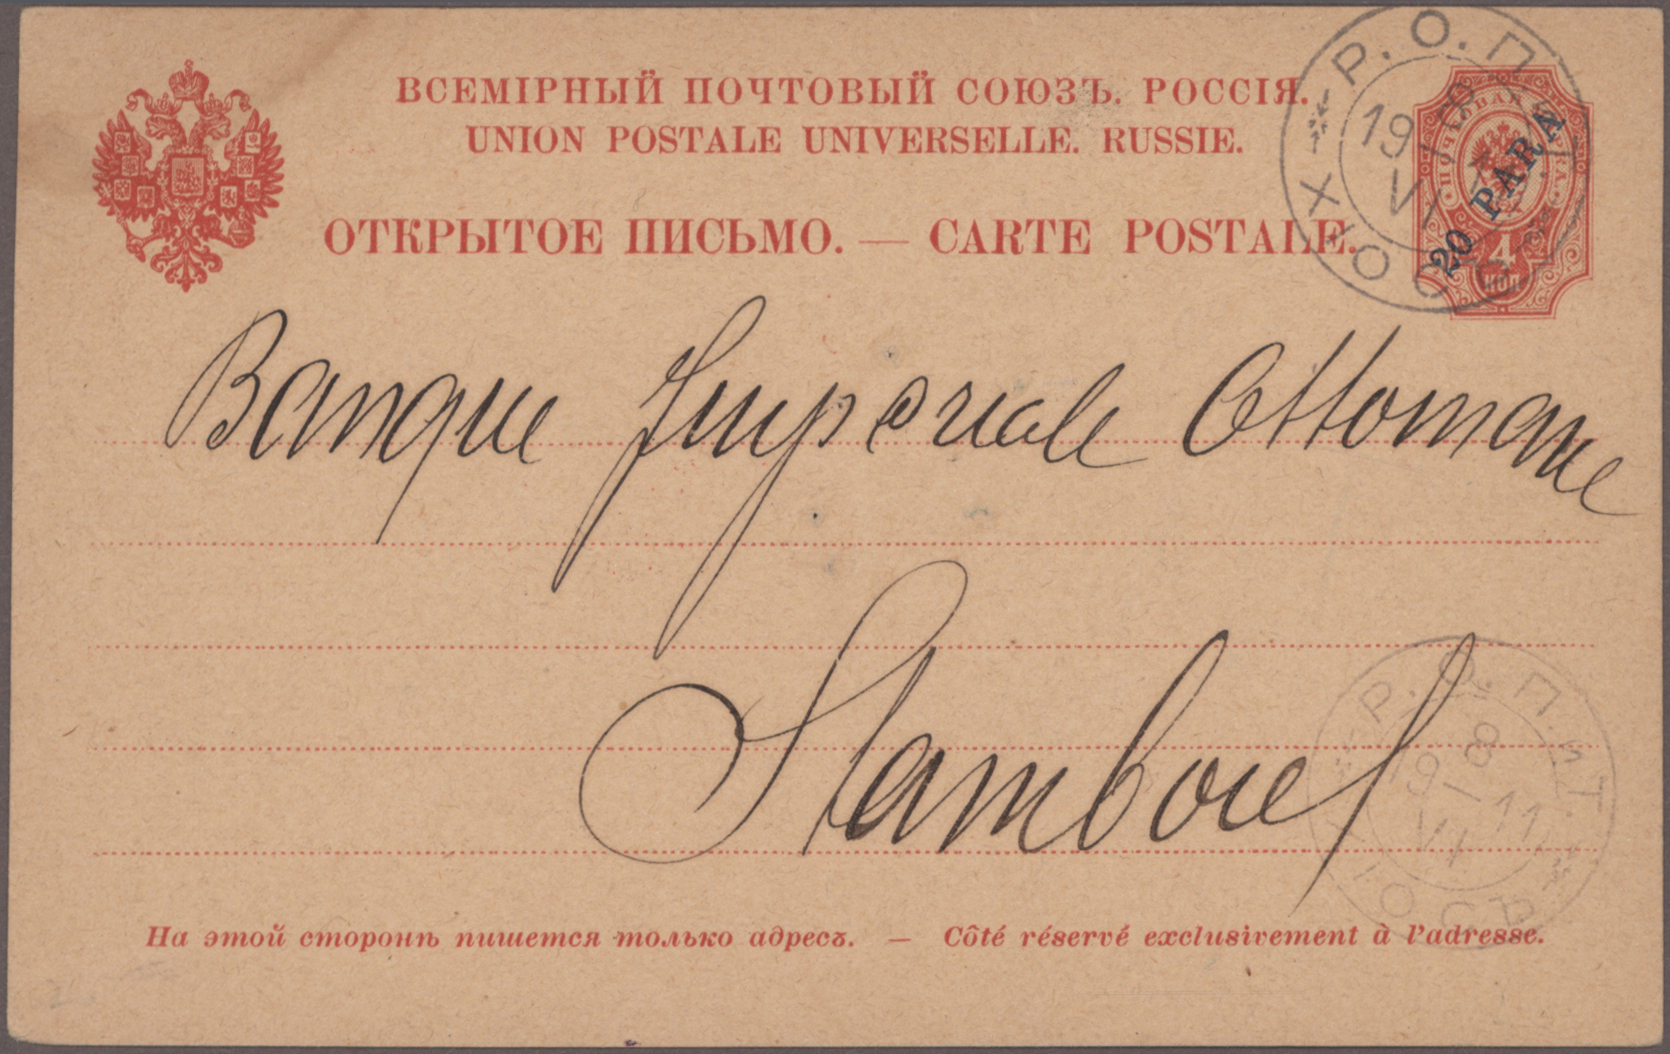 ВСЕМІРНЫЙ ПОЧТОВЫЙ СОЮЗЪ. РОССІЯ.
UNION POSTALE UNIVERSELLE. RUSSIE.
ОТКРЫТОЕ ПИСЬМО. — CARTE POSTALE.
Р. О. П.
19 VI
ХІОСЪ
20 PARA
4
КОП
Banque Imperiale Ottomane
Stamboul
Р. О. П. и Т.
8
19 — 11
VI
ХІОСЪ
На этой сторонѣ пишется только адресъ. — Côté réservé exclusivement à l'adresse.